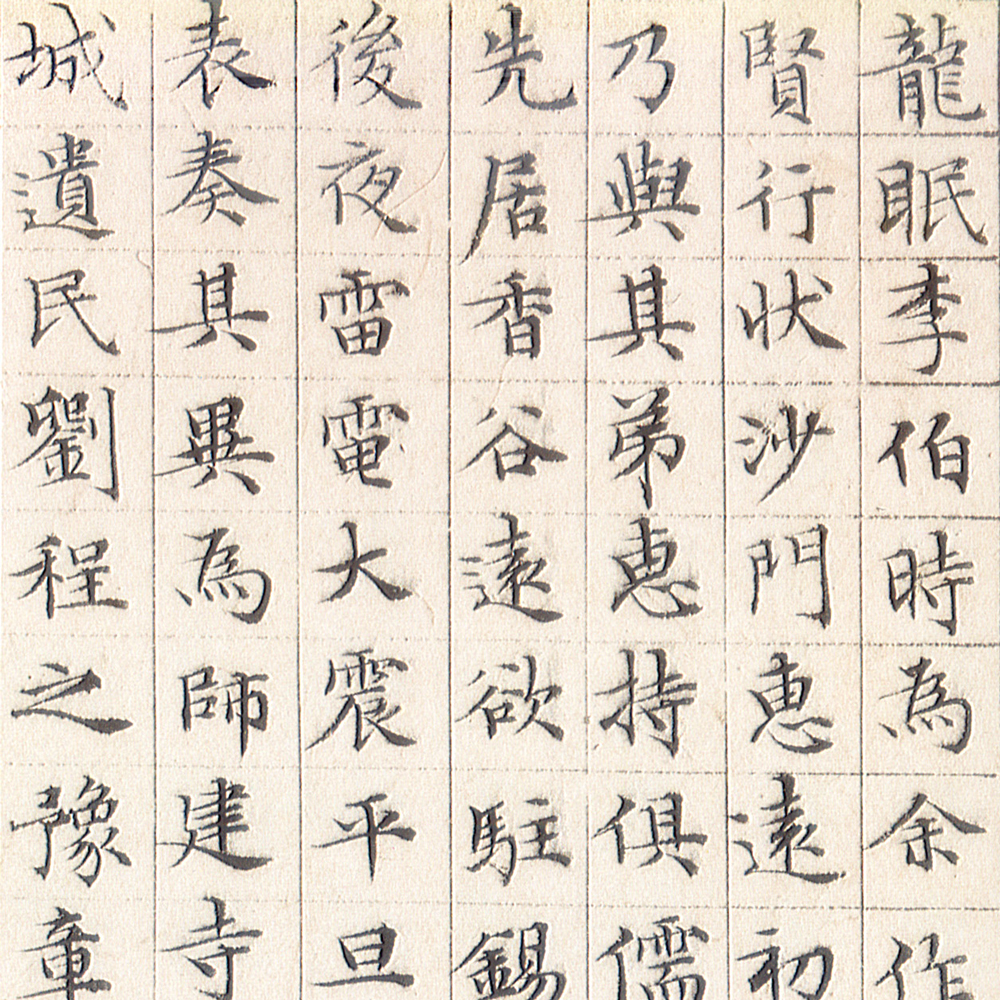 龍眠李伯時為余作
賢行状沙門惠遠初
乃與其弟惠持俱儒
先居香谷遠欲駐錫
後夜雷電大震平旦
表奏其異為師建寺
城遺民劉程之豫章